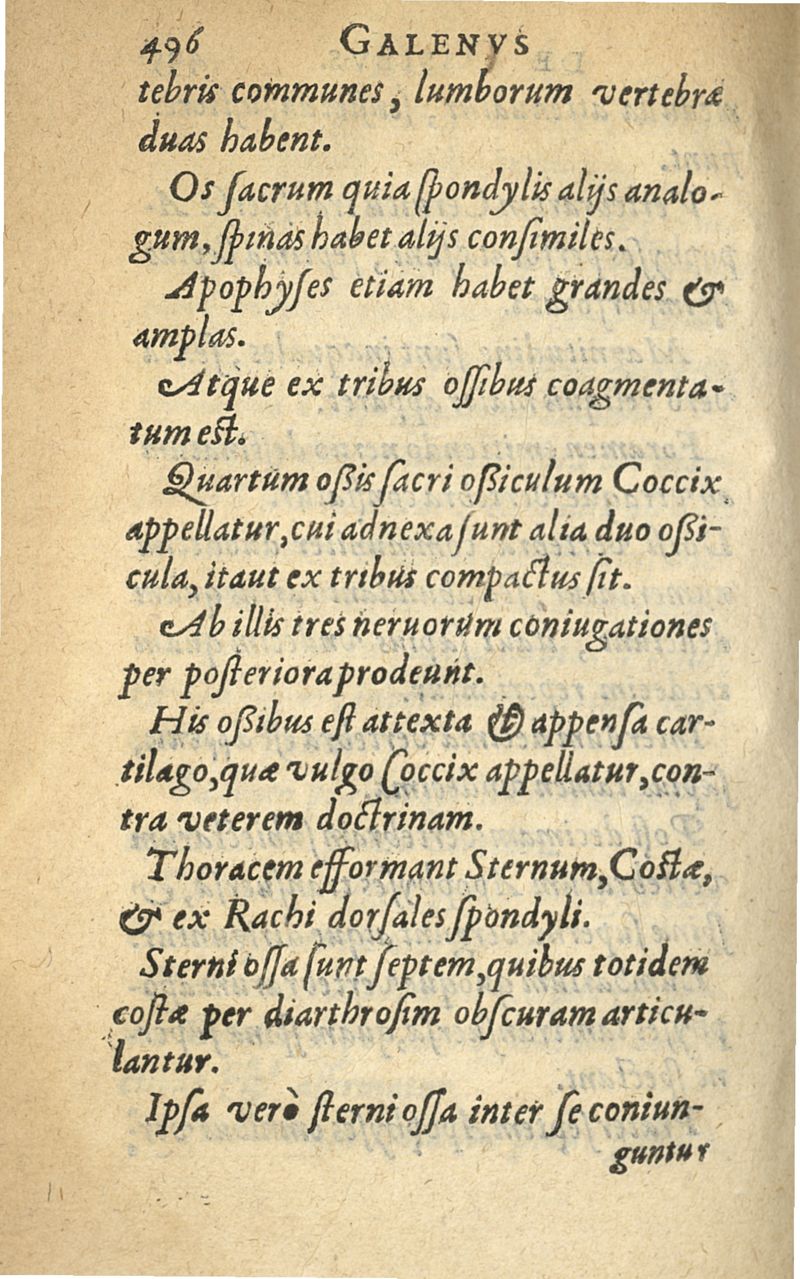 496 GALENVS
tebris communes, lumborum vertebræ
duas habent.
Os ſacrum quia ſpondylis alijs analo-
gum, ſpinas habet alijs conſimiles.
Apophyſes etiam habet grandes &
amplas.
Atque ex tribus oſſibus coagmenta-
tum eſt.
Quartum oßis ſacri oßiculum Coccix
appellatur, cui adnexa ſunt alia duo oßi-
cula, itaut ex tribus compactus ſit.
Ab illis tres neruorum coniugationes
per poſteriora prodeunt.
His oßibus eſt attexta & appenſa car-
tilago, quæ vulgo Coccix appellatur, con-
tra veterem doctrinam.
Thoracem efformant Sternum, Coſtæ,
& ex Rachi dorſales ſpondyli.
Sterni oſſa ſunt ſeptem, quibus totidem
coſtæ per diarthroſim obſcuram articu-
lantur.
Ipſa verò ſterni oſſa inter ſe coniun-
guntur